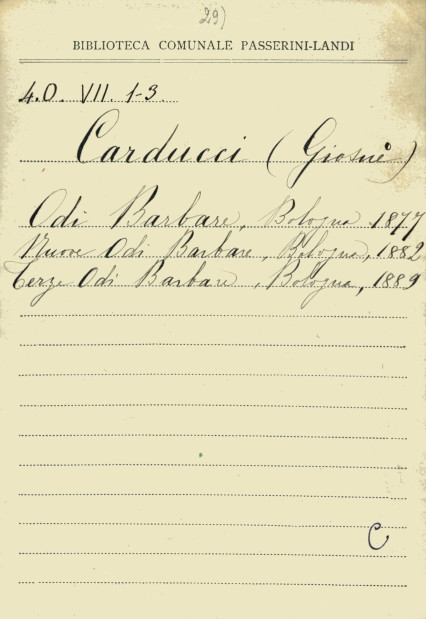 29)
BIBLIOTECA COMUNALE PASSERINI-LANDI
4.O. VII. 1-3.
Carducci (Giosuè)
Odi Barbare, Bologna 1877
Nuove Odi Barbare, Bologna, 1882
Terze Odi Barbare, Bologna, 1889
C